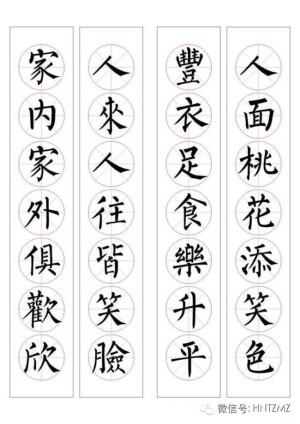 人面桃花添笑色
豐衣足食樂升平
人來人往皆笑臉
家內家外俱歡欣
微信号: HNTZMZ